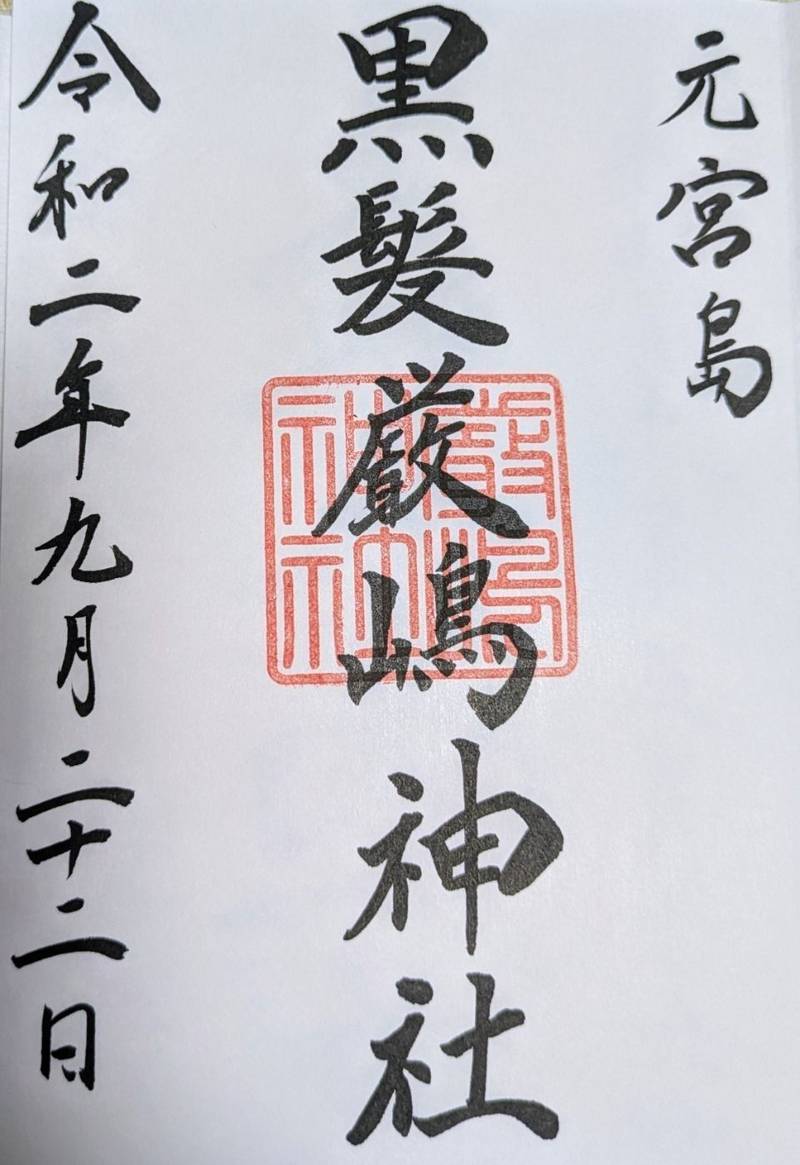 元宮島
黒髪厳嶋神社
厳嶋
神社
令和二年九月二十二日